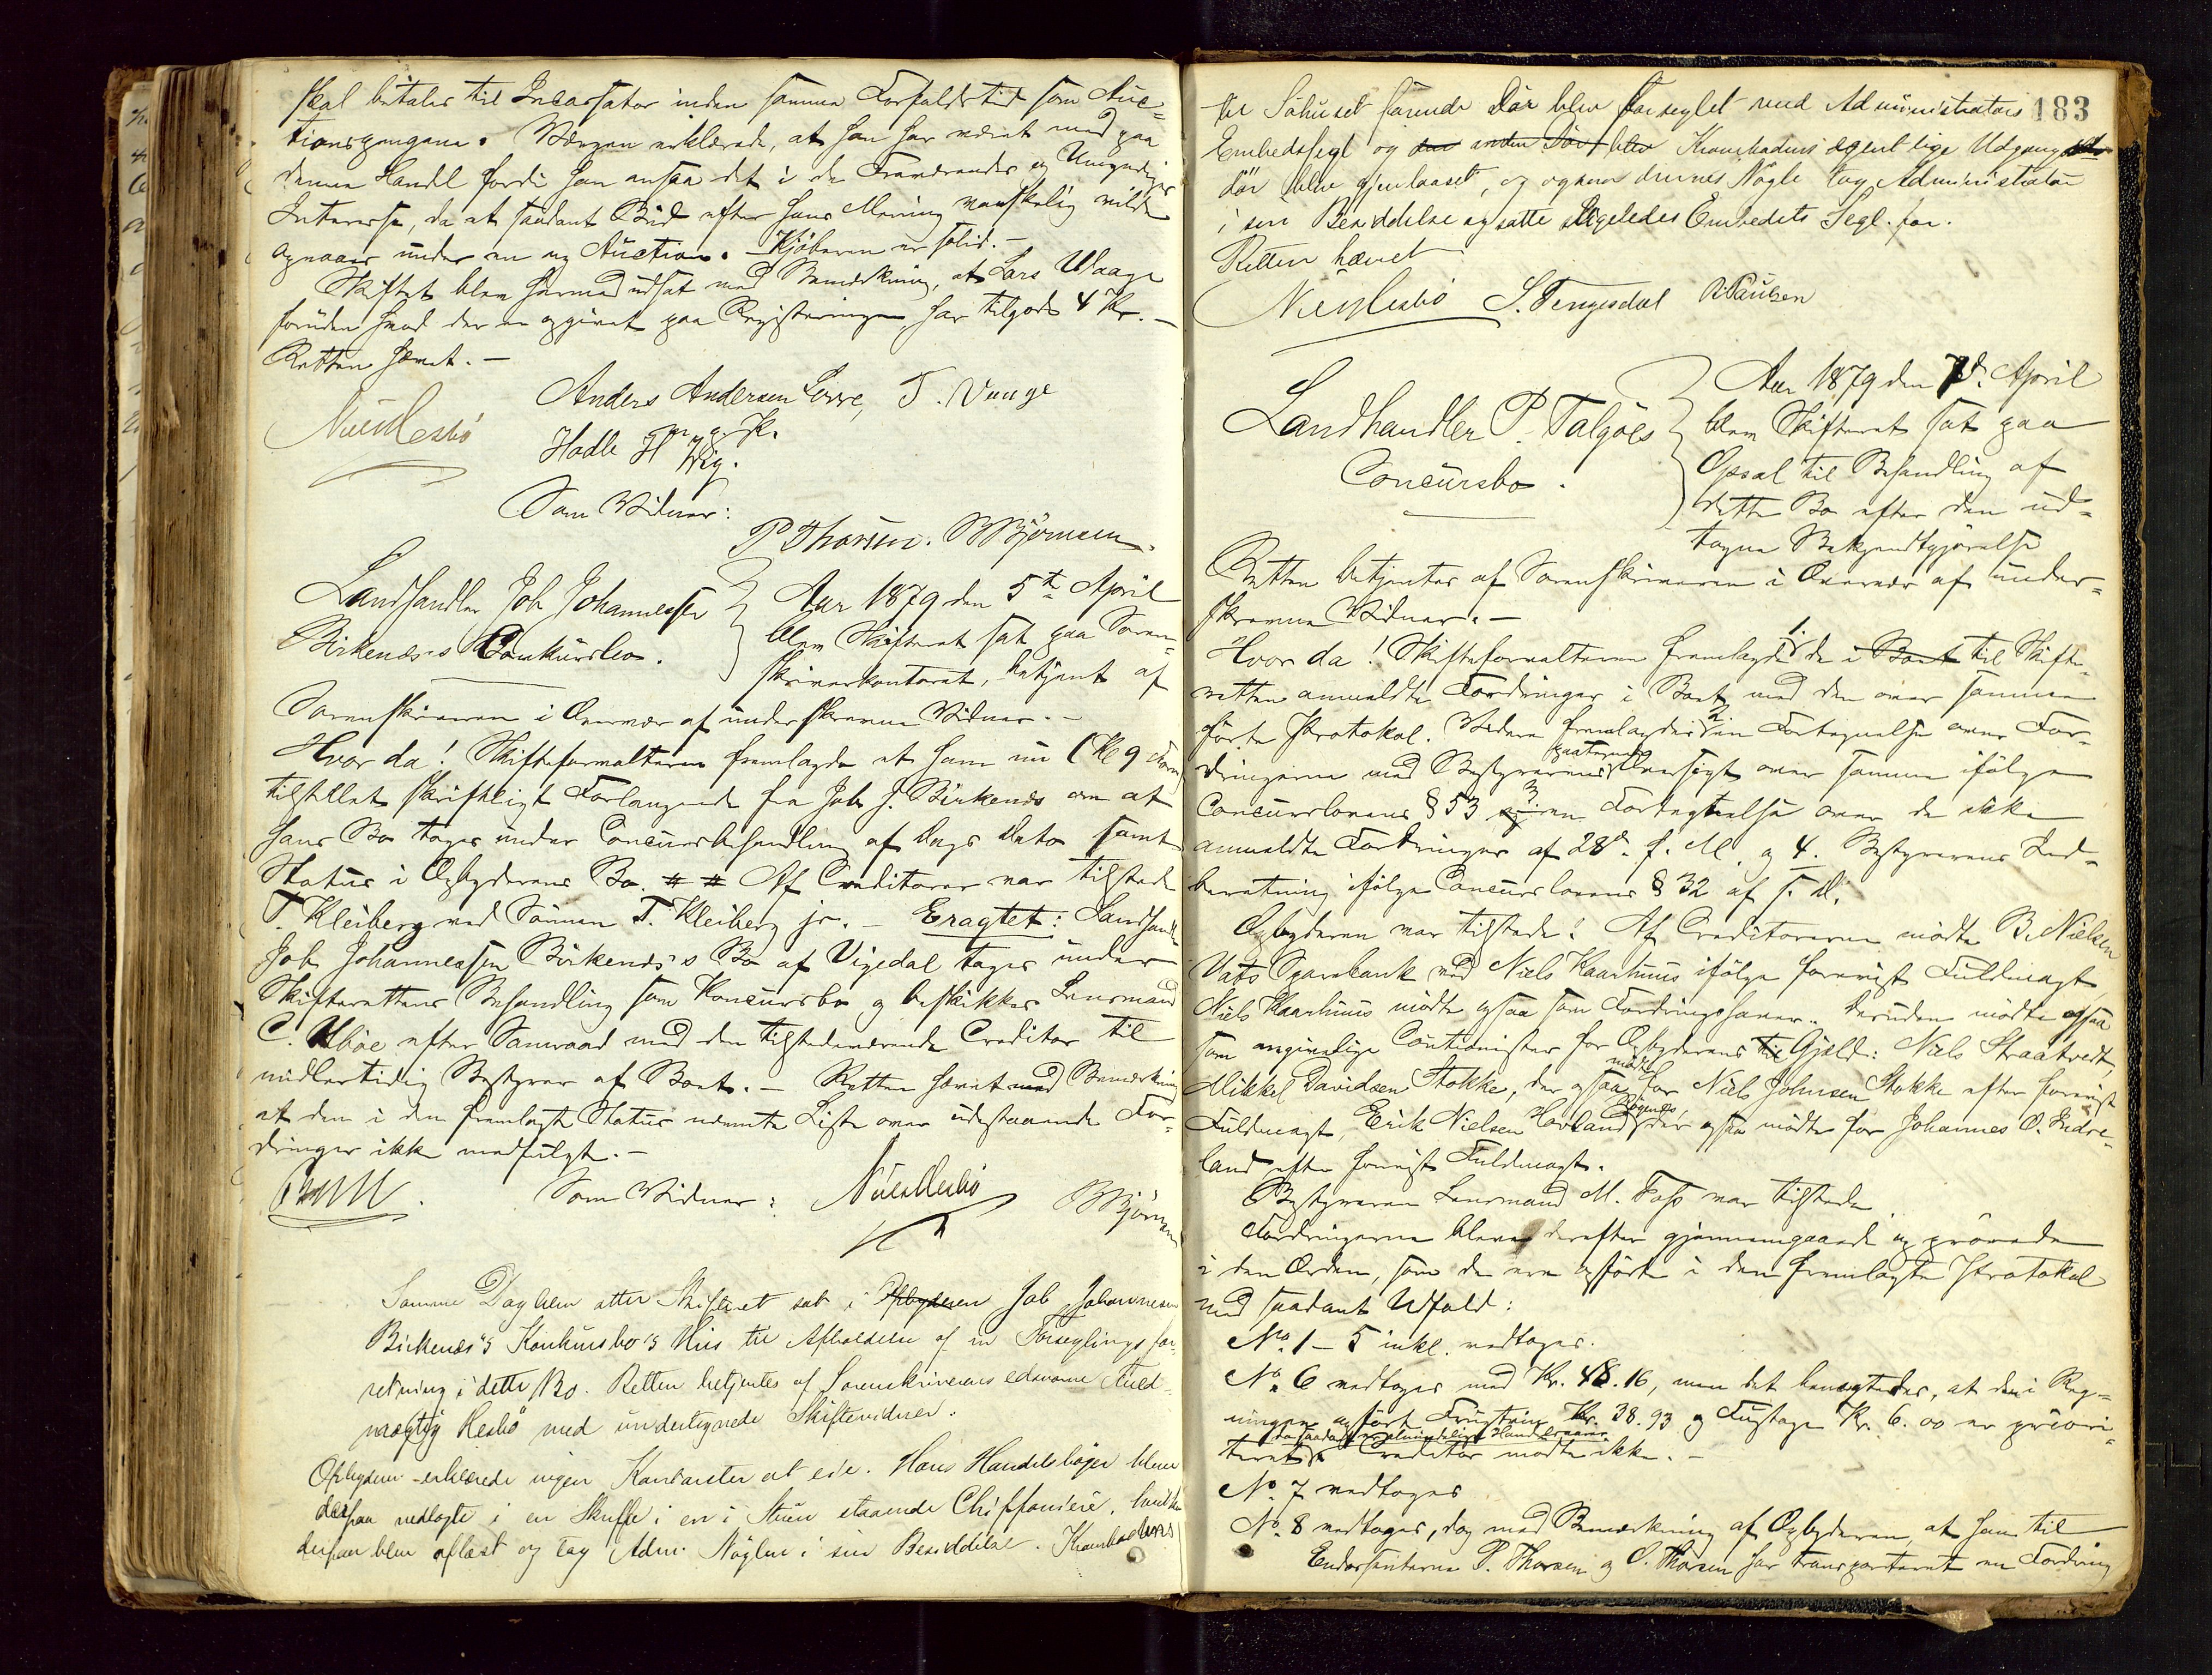 skal betales til Incassator inden samme Forfaldstid som Auc-
tionspengene. Værgen erklærede, at han har været med paa
denne Handel fordi han ansaa det i de Fraværendes og Umyndiges
Interesse, da et saadant Bud efter hans Mening vanskelig vilde
opnaaes under en ny Auction. Kjøberen er solid.—
Skiftet blev hermed udsat med Bemærkning, at Lars Waage
foruden hvad der er opgivet paa Registeringen har tilgode 4 Kr.—
Retten hævet.—
Anders Andersen T. Vaage
Hadle H
m. p. P.
Som Vidner:
P Thorsen. BBjörnsen.
Landhandler Job Johannessen
Birkenæs's Konkursbo.
Aar 1879 den 5te April
blev Skifteret sat paa Soren-
skriverkontoret, betjent af
Sorenskriveren i Overvær af underskrevne Vidner.—
Hvor da! Skifteforvalteren fremlagde et ham nu (Kl 9 Form)
tilstillet skriftligt Forlangende fra Job J. Birkenæs om at
hans Bo tages under Concursbehandling af Dags Dato samt
Status i Opbyderens Bo. Af Creditorer var tilstede
T. Kleiberg ved Sönnen T. Kleiberg jr. — Eragtet: Landhandler
Job Johannessen Birkenæs's Bo af Vigedal tages under
Skifterettens Behandling som Koncursbo og beskikkes Lensmand
C. Ubøe efter Samraad med den tilstedeværende Creditor til
midlertidig Bestyrer af Boet.— Retten hævet med Bemærkning
at den i den fremlagte Status nævnte Liste over udestaaende For-
dringer ikke medfulgte.—
Som Vidner:
BBjörnsen
Samme Dag blev atter Skifteret sat i Opbyderen Job Johannesen
Birkenæs's Konkursbo's Hus til Afholdelse af en Forseglingsfor-
retning i dette Bo. Retten betjentes af Sorenskriverens edsvorne Fuld-
mægtig Hesbö med undertegnede Skiftevidner.
Opbyderen erklærede ingen Kontanter at eie. Hans Handelsböger bleve
derpaa nedlagte i en Skuffe i en i Stuen staaende Chiffoniere,
derpaa blev aflaast og tog Adm. Nöglen i sin Besiddelse. Krambodens
183
til Söhuset förende Dör blev forseglet med Administrators
Embedssegl og den anden Dör blev Krambodens egentlige Udgangs
dör blev gjenlaaset, og ogsaa dennes Nögle tog Administrator
i sin Besiddelse og satte ligeledes Embedets Segl for.
Retten hævet
S. Tengesdal P. Paulsen
Landhandler P. Talgöes
Concursbo.
Aar 1879 den 7de April
blev Skifteret sat paa
Opsal til Behandling af
dette Bo efter den ud-
tagne Bekjendtgjörelse
Retten betjentes af Sorenskriveren i Overvær af under-
skrevne Vidner.—
Hvor da! Skifteforvalteren fremlagde 1. de i Boet til Skifte-
retten anmeldte Fordringer i Boet med den over samme
förte Protokol. Videre fremlagdes 2 en Fortegnelse over For-
dringerne med Bestyrerens paategnede Oversigt over samme ifölge
Concurslovens § 53 3 en Fortegnelse over de ikke
anmeldte Fordringer af 28de f. M. og 4. Bestyrerens Ind-
beretning ifölge Concurslovens § 32 af s. D.
Opbyderen var tilstede. Af Creditorerne mødte B. Nielsen
Vats Sparebank ved Niels Kaarhuus ifölge forevist Fuldmagt
Niels Kaarhuus mödte ogsaa som Fordringshaver. Desuden mödte ogsaa
som angivelige Cautionister for Opbyderens Gjæld: Niels Straatvedt,
Mikkel Davidsen Stokke, der ogsaa mödte for Niels Johnsen Stokke efter forevist
Fuldmagt, Erik Nielsen Hovland der ogsaa mödte for Johannes O. Indre-
land efter forevist Fuldmagt.
Bestyreren Lensmand M. Foss var tilstede
Fordringerne bleve derefter gjennemgaaede og prövede
i den Orden, som de ere opförte i den fremlagte Protokol
med saadant Udfald:
No. 1 – 5 inkl. vedtages.
No. 6 vedtages med Kr. 48.16, men det benægtedes, at den i Reg-
ningen opfört Kr. 38.93 og Fustage Kr. 6.00 er priori-
da saadant er almindelige Handelsvarer
teret. Creditor mødte ikke.—
No. 7 vedtages
No. 8 vedtages, dog med Bemærkning af Opbyderen, at han til
Endossenterne P. Thorsen og O. Thorsen har transporteret en Fordring